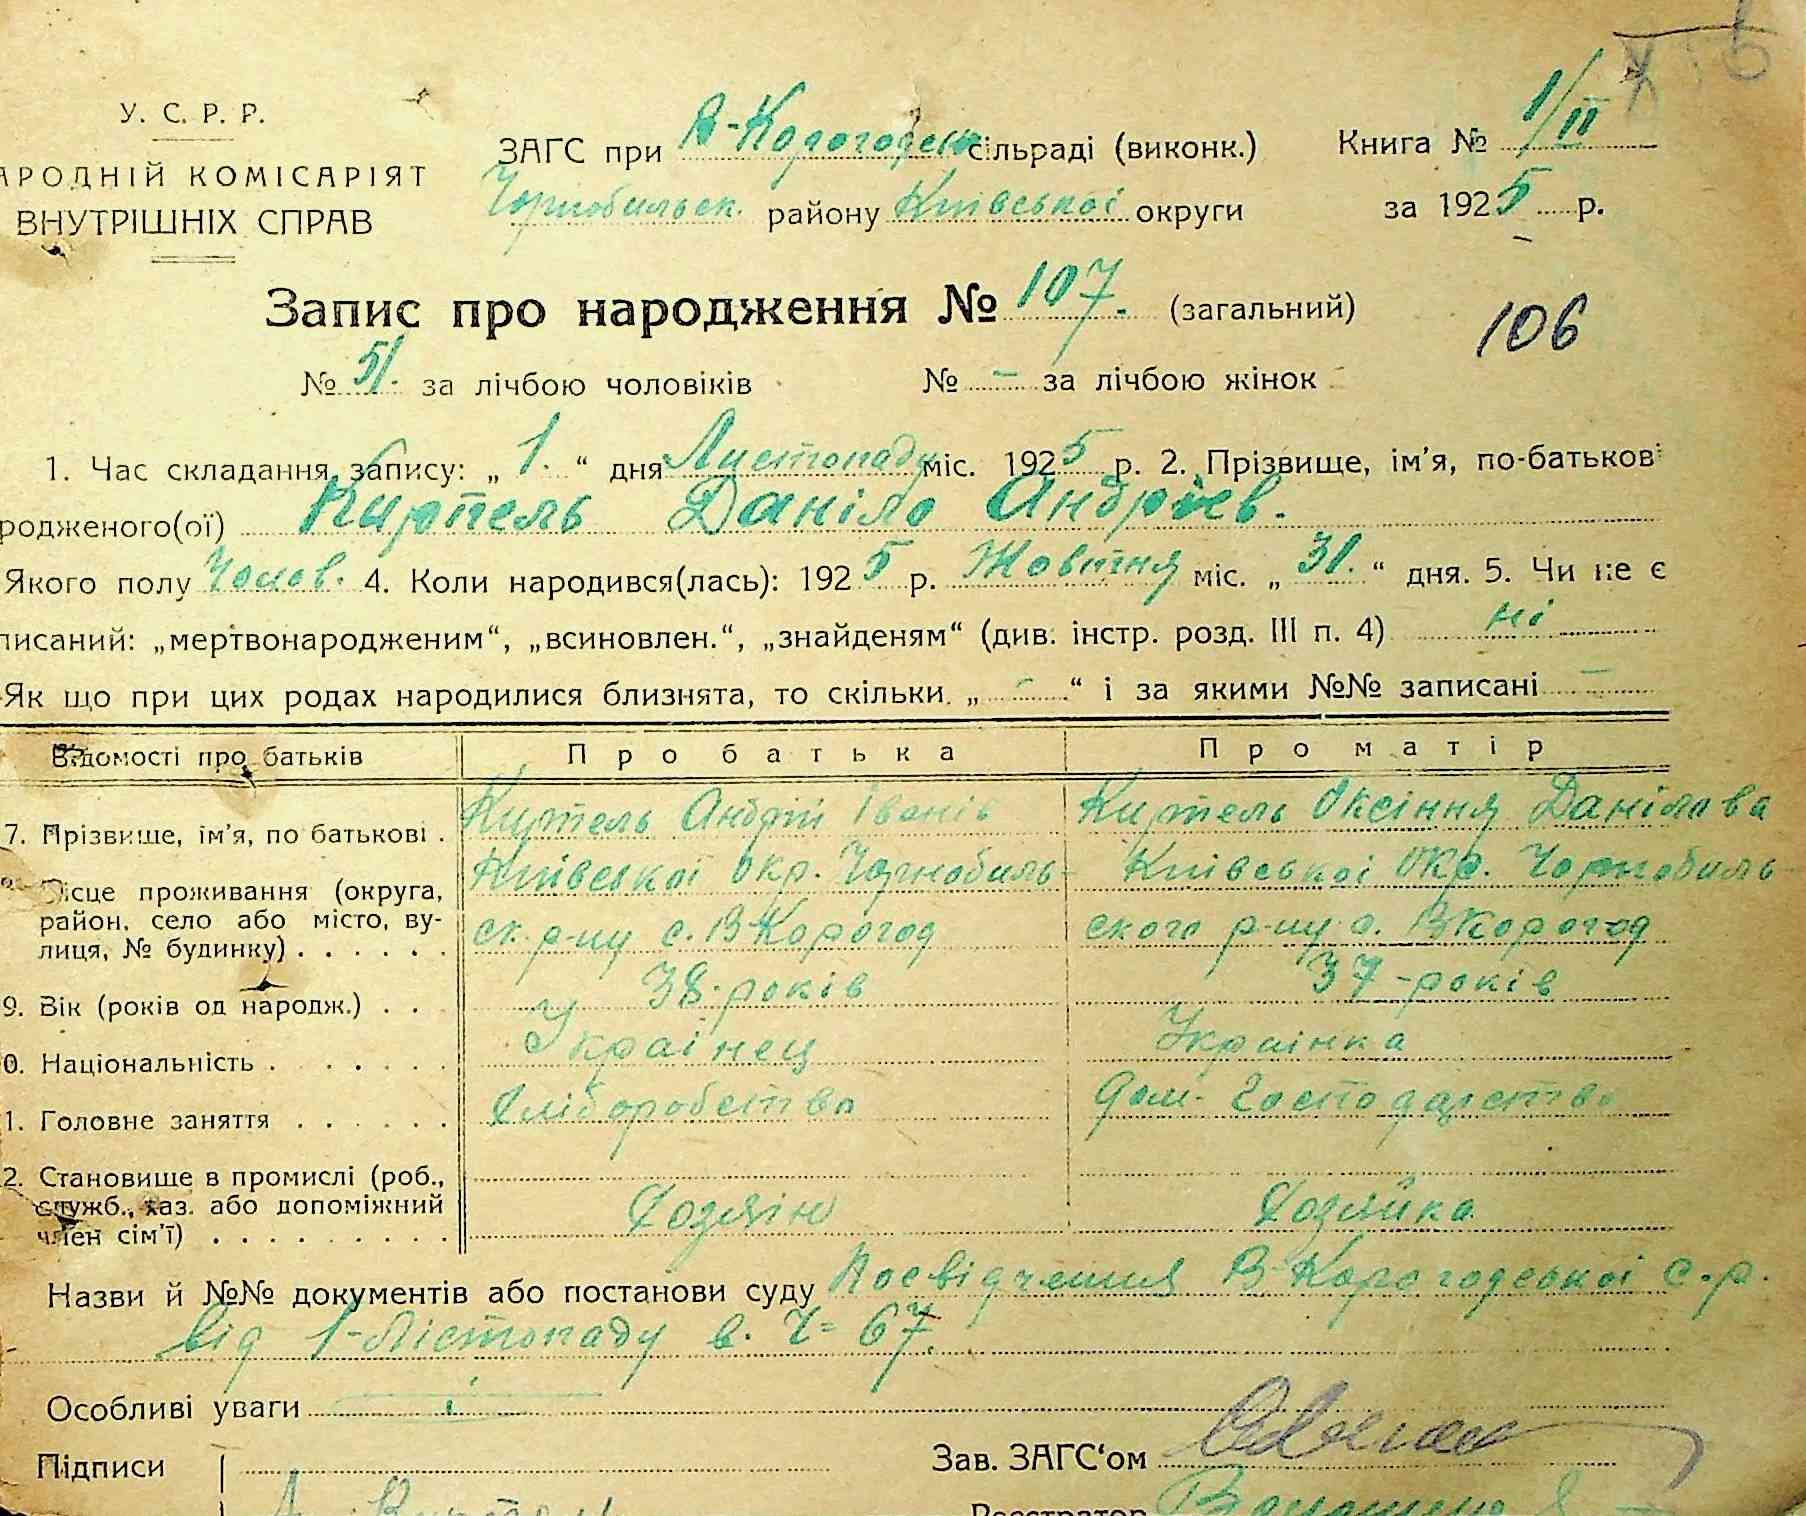 У. С. Р. Р.
АРОДНІЙ КОМІСАРІЯТ
ВНУТРІШНІХ СПРАВ
ЗАГС при В-Корогодськ сільраді (виконк.)
Чорнобильск. району Київської округи
Книга № 1/II
за 1925 р.
Запис про народження № 107. (загальний)
106
№ 51. за лічбою чоловіків № - за лічбою жінок
1. Час складання запису: „ 1. “ дня Листопаду міс. 1925 р. 2. Прізвище, ім'я, по-батьков
родженого(ої) Киртель Даніло Андріев.
Якого полу Чолов. 4. Коли народився(лась): 1925 р. Жовтня міс. „ 31. “ дня. 5. Чи не є
писаний: „мертвонародженим“, „всиновлен.“, „знайденям“ (див. інстр. розд. III п. 4) ні
Як що при цих родах народилися близнята, то скільки „ - “ і за якими №№ записані -
Відомості про батьків Про батька Про матір
7. Прізвище, ім'я, по батькові . Киртель Андрій Іванів Киртель Оксіння Данілова
Місце проживання (округа, район, село або місто, вулиця, № будинку) . . . . . .
Київської Окр. Чорнобиль- Київської Окр. Чорнобиль-
ск. р-ну с. В Корогод ского р-ну с. В Корогод
9. Вік (років од народж.) . . 38-років 37-років
0. Національність . . . . . . Украінец Украінка
1. Головне заняття . . . . . . Хліборобство дом- Господарство
2. Становише в промислі (роб., служб., хаз. або допоміжний член сім'ї) . . . . . . . . . Хозяін Хозяйка
Назви й №№ документів або постанови суду Посвідчення В-Корогодської с.р.
від 1-Лістопаду в. Ч= 67.
Особливі уваги
Підписи
Зав. ЗАГС‘ом
Реєстратор